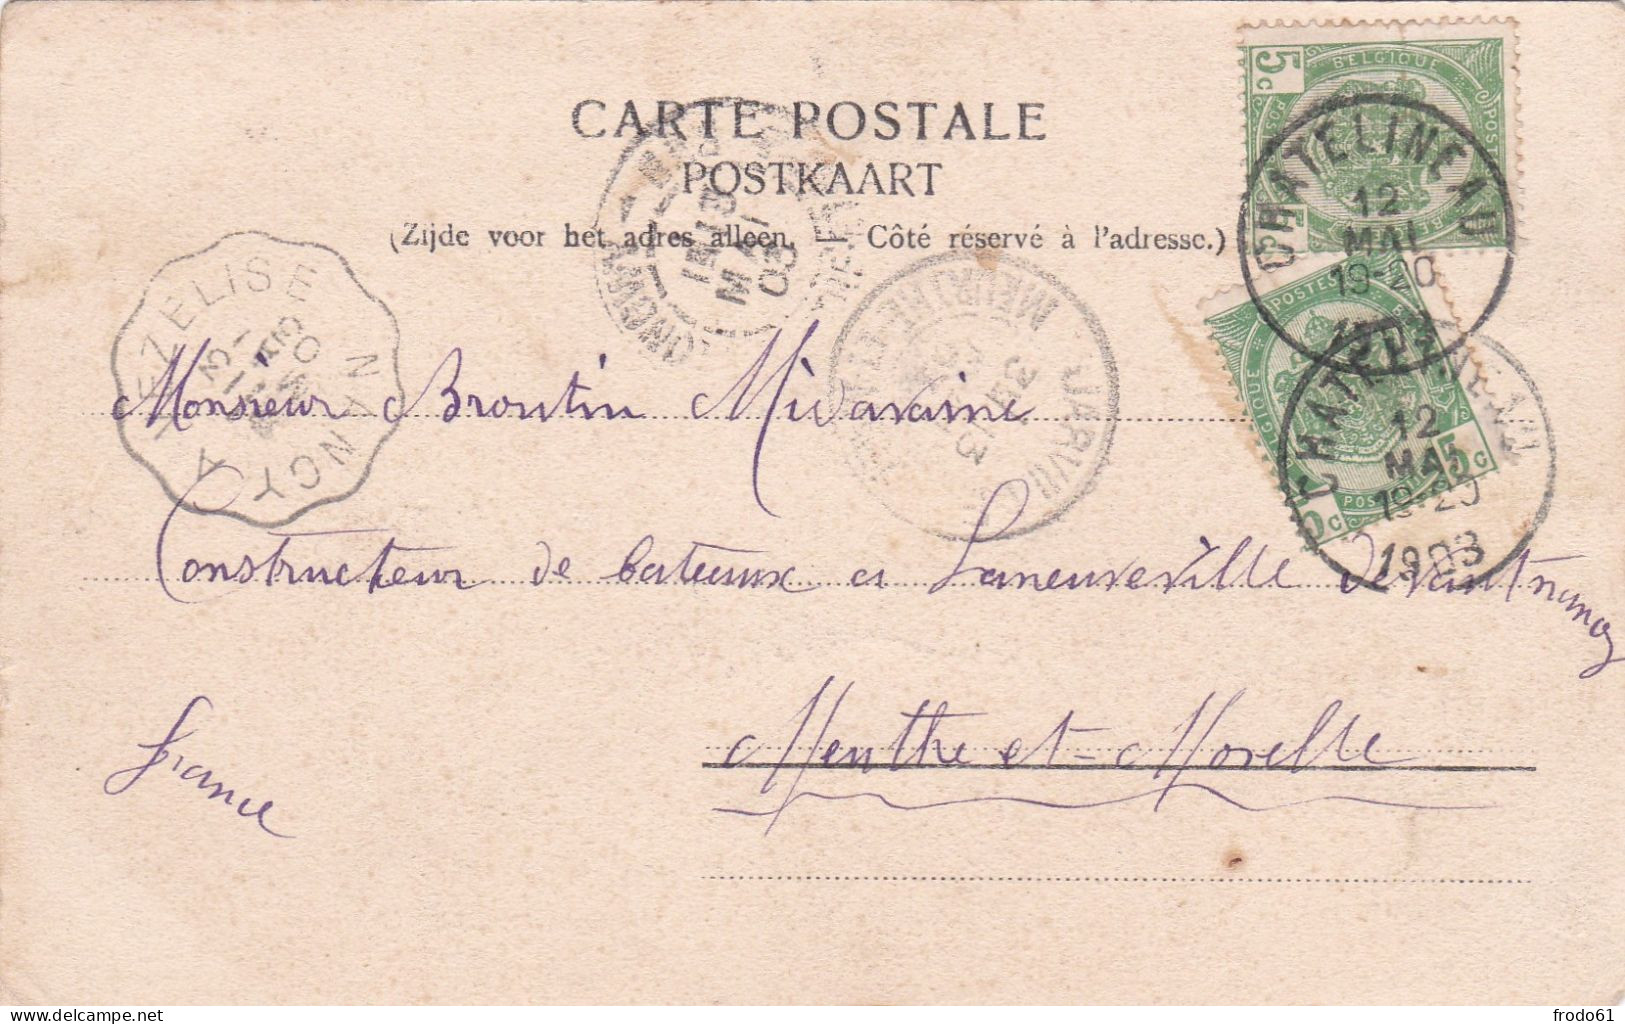 CARTE POSTALE
POSTKAART
(Zijde voor het adres alleen. Côté réservé à l'adresse.)
5c
BELGIQUE
CHATELINEAU
12
MAI
19-20
1903
POSTES
5c
POSTERIJEN
CHATELINEAU
12
MAI
19-20
1903
VEZELISE
NANCY A
JARVILLE
MEURTHE-ET-
Monsieur Broutin Mivaraine
Constructeur de bateaux a Laneuveville devant nancy
Meurthe et-Moselle
france
frodo61